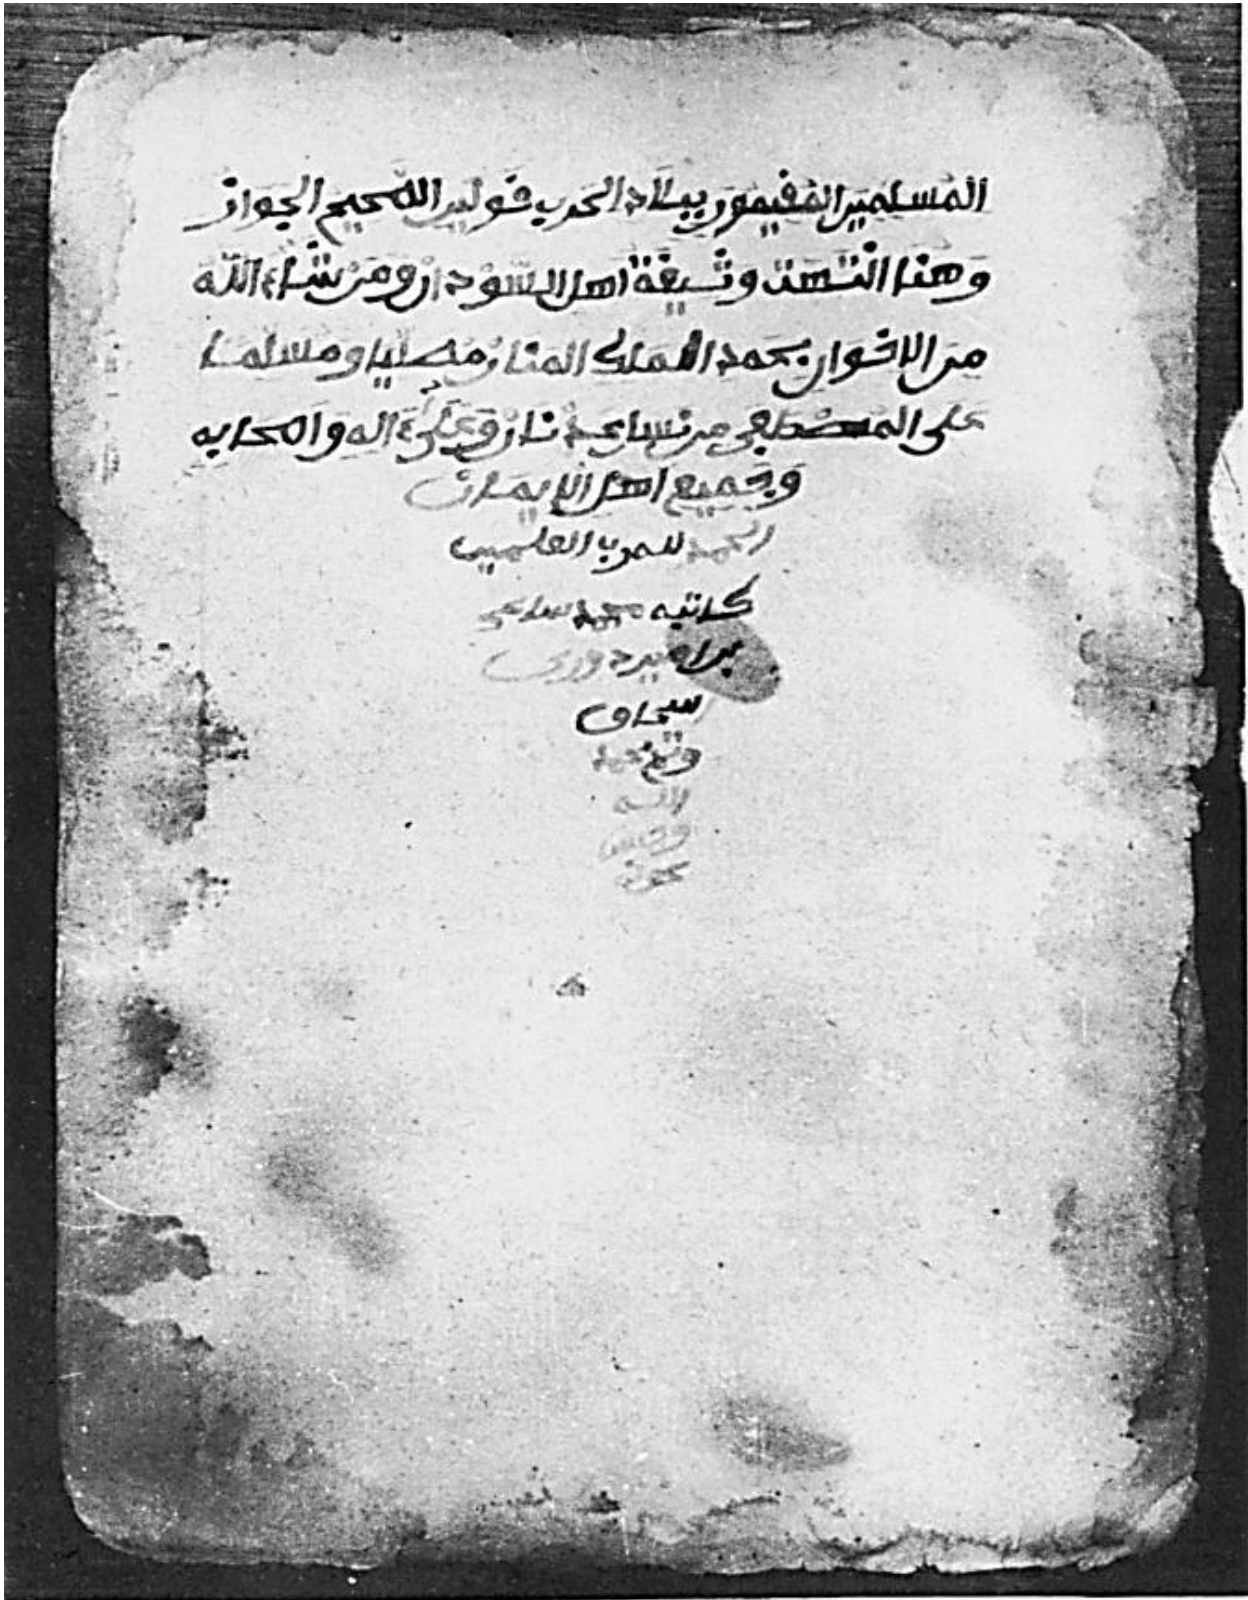 المسلمين المقيمون ببلاد الحرب قولين الصحيح الجواز
وهنا انتهت وثيقة اهل السودان ومن شاء الله
من الاخوان بحمد الملك المنان مصليا ومسلما
على المصطفى من نسل عدنان وعلى ءاله واصحابه
وجميع اهل الايمان
الحمد لله رب العلمين
كاتبه محمد
الله